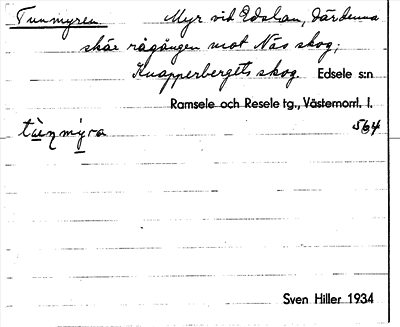 Tunmyren Myr vid Edslan, där denna
skär rågången mot Näs skog;
Knapperbergets skog. Edsele s:n
Ramsele och Resele tg., Västernorrl. l.
564
Sven Hiller 1934